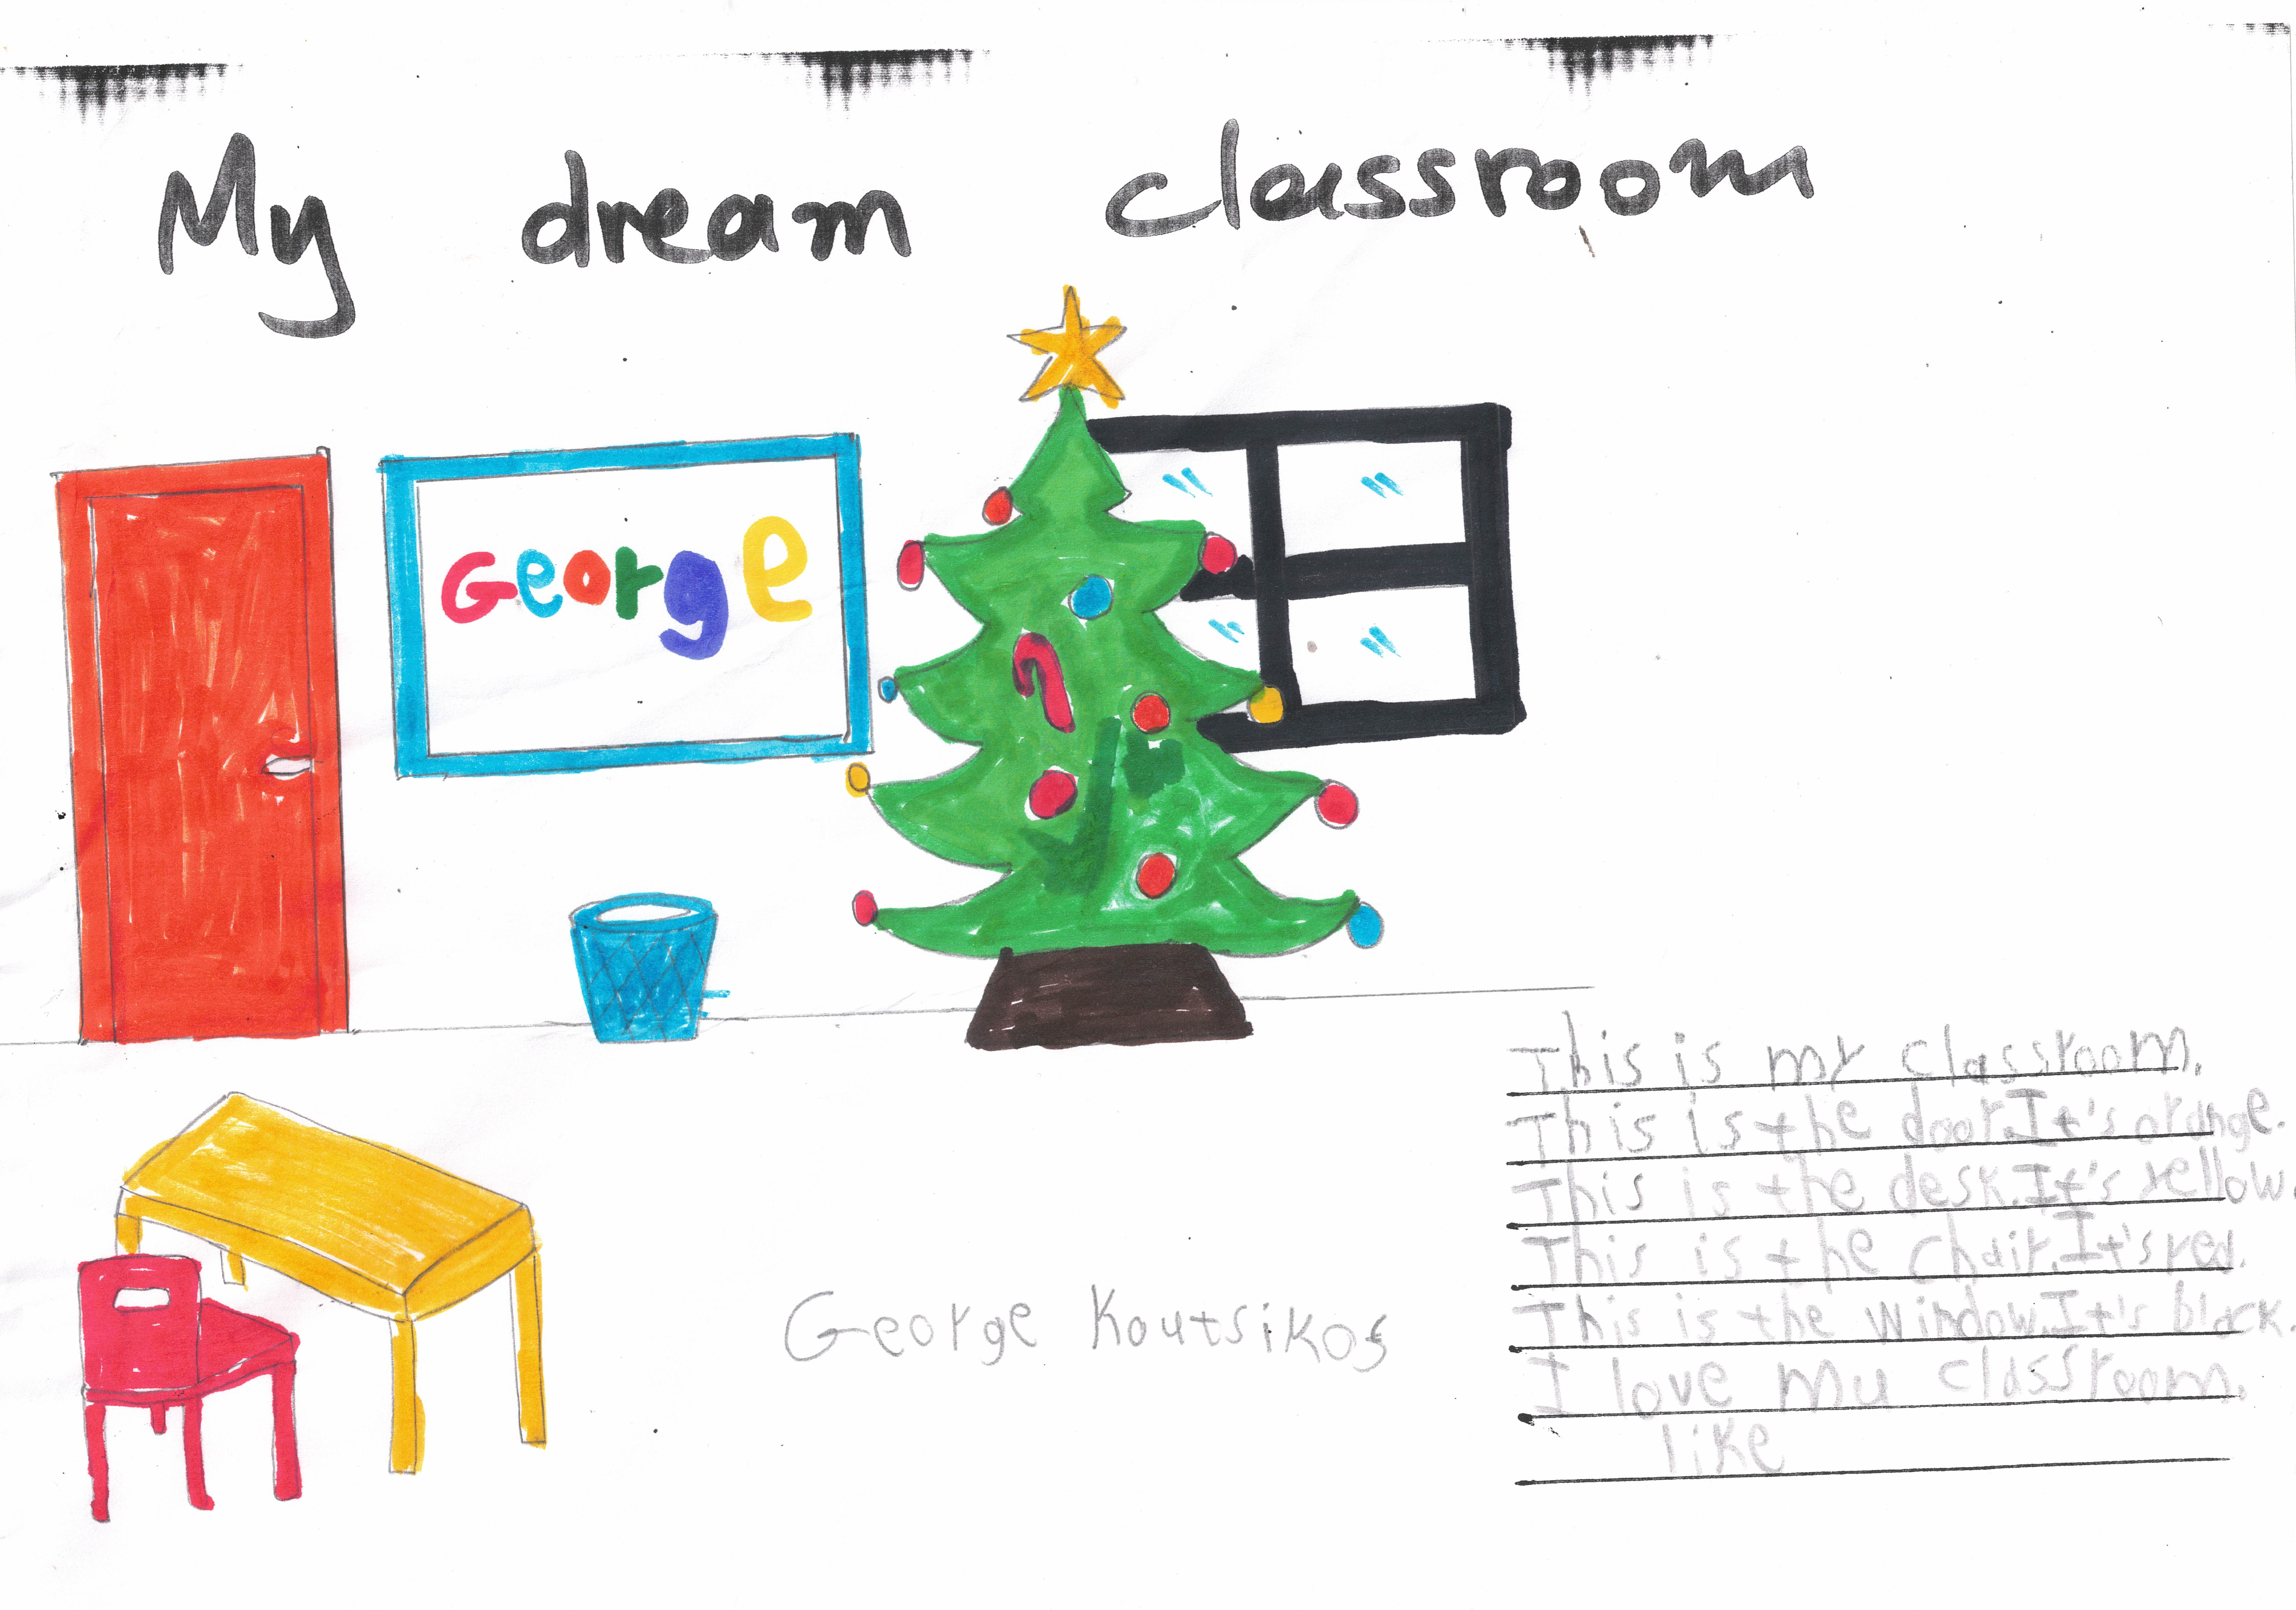 My dream classroom
George
This is my classroom.
This is the door.It's orange.
This is the desk.It's yellow.
This is the chair.It's red.
This is the window.It's black.
I love mu classroom.
like
George Koutsikos